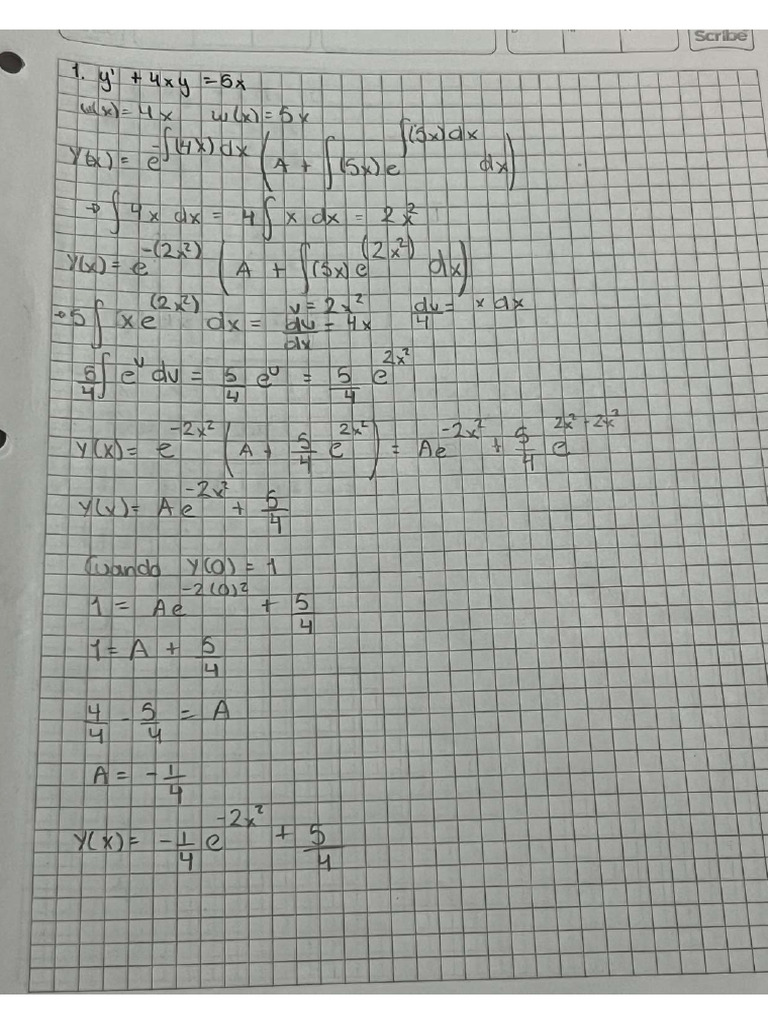 Scribe
1. y' + 4xy = 5x
u(x) = 4x w(x) = 5x
y(x) = e^{-∫(4x)dx} (A + ∫(5x)e^{∫(5x)dx} dx)
→ ∫4x dx = 4∫x dx = 2x²
y(x) = e^{-(2x²)} (A + ∫(5x)e^{(2x²)} dx)
→ 5∫xe^{(2x²)} dx = u = 2x² du/dx = 4x du/4 = x dx
5/4 ∫e^u du = 5/4 e^u = 5/4 e^{2x²}
y(x) = e^{-2x²} (A + 5/4 e^{2x²}) = Ae^{-2x²} + 5/4 e^{2x²-2x²}
y(x) = Ae^{-2x²} + 5/4
Cuando y(0) = 1
1 = Ae^{-2(0)²} + 5/4
1 = A + 5/4
4/4 - 5/4 = A
A = -1/4
y(x) = -1/4 e^{-2x²} + 5/4